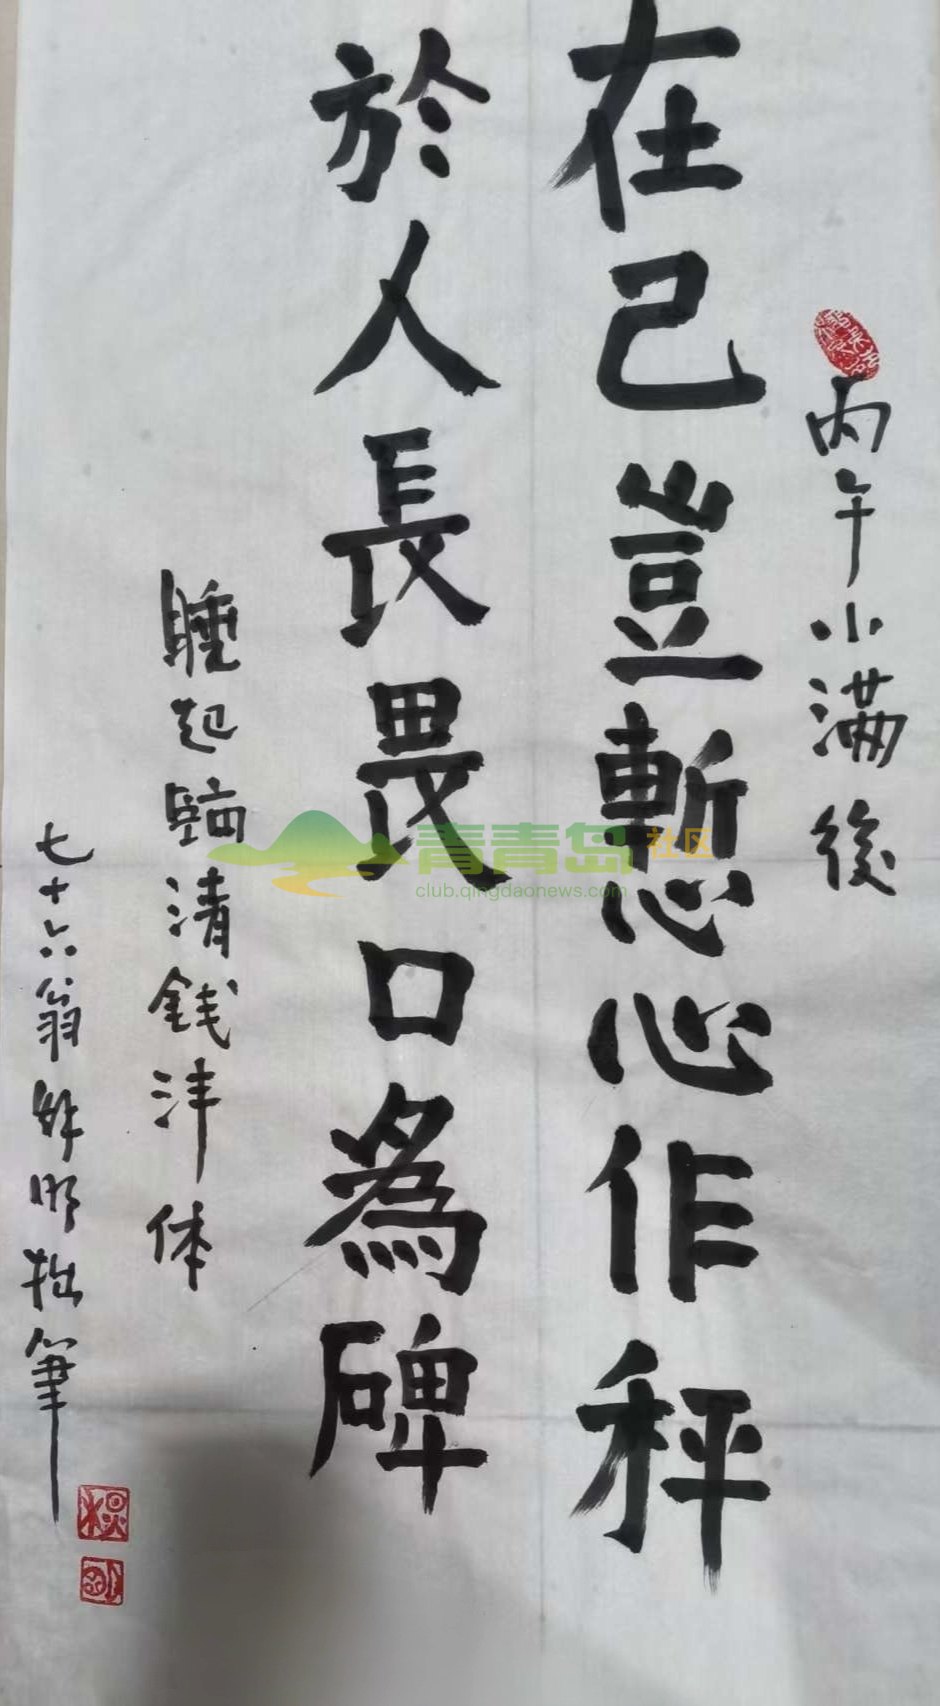 丙午小满後
在己豈慙心作秤
於人長畏口為碑
睡起臨清錢沣体
七十六翁 明拙筆
青青岛社区
club.qingdaonews.com